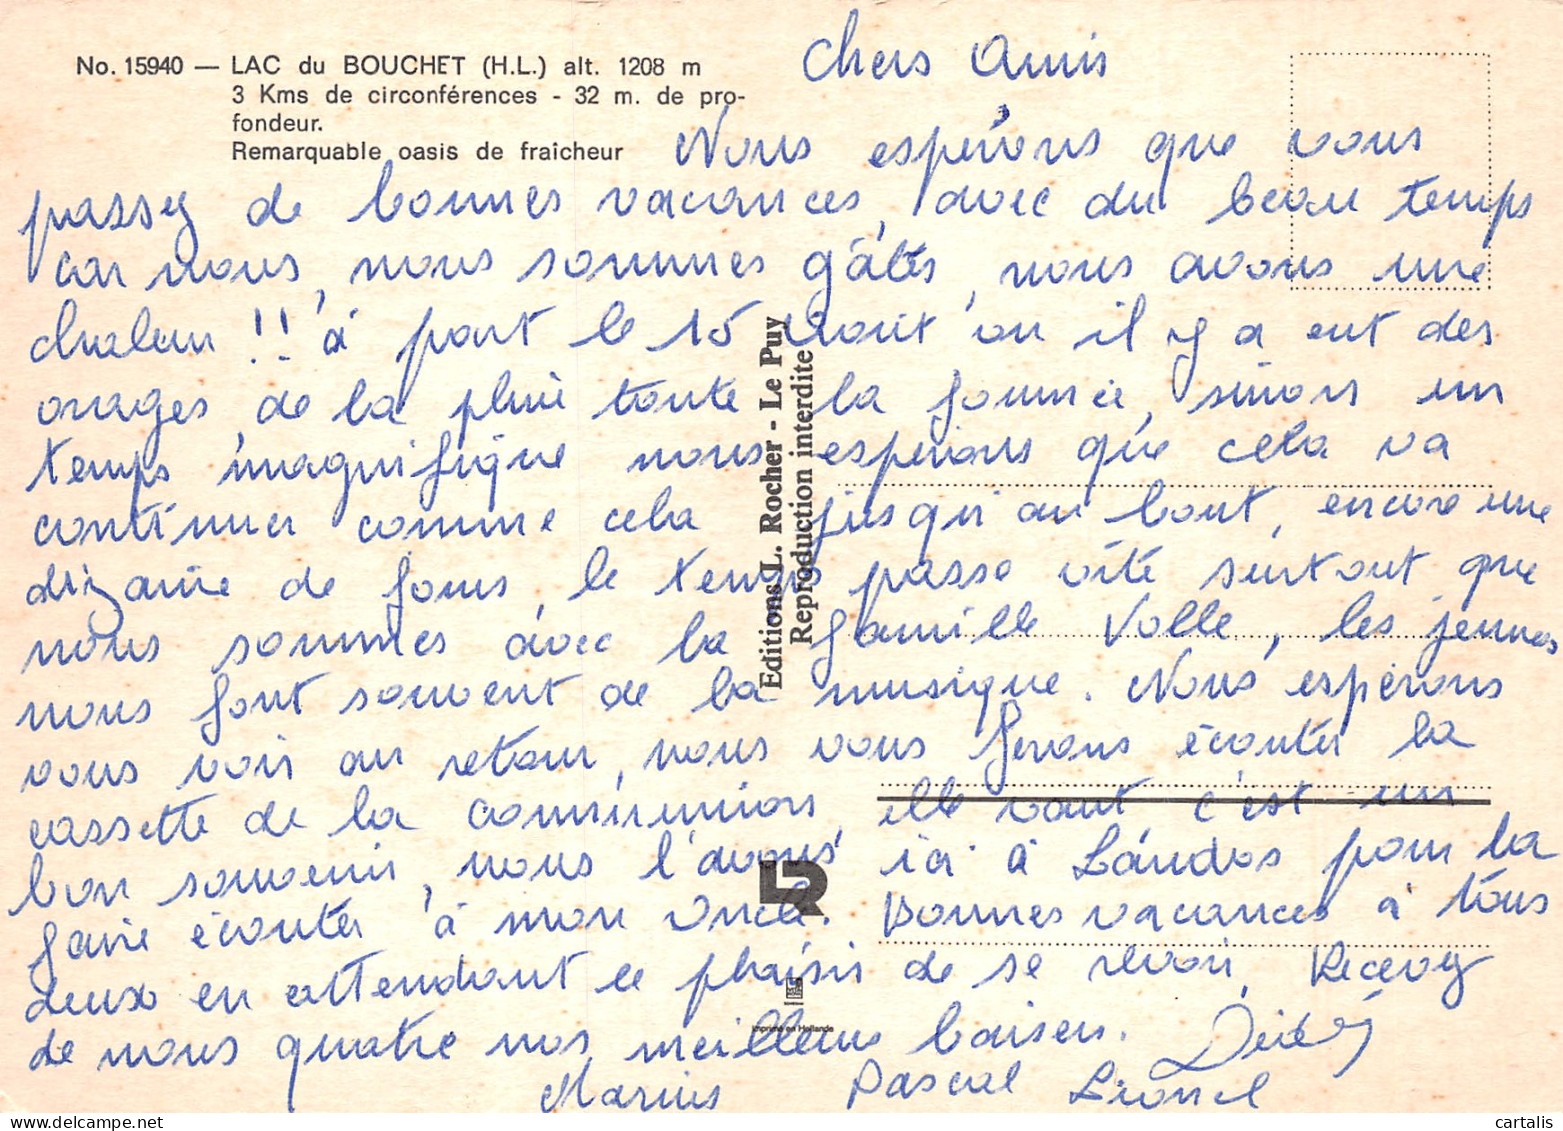 No. 15940 — LAC du BOUCHET (H.L.) alt. 1208 m
3 Kms de circonférences - 32 m. de pro-
fondeur.
Remarquable oasis de fraîcheur
Chers Amis
Nous espérons que vous
passez de bonnes vacances, avec du beau temps
car nous, nous sommes gâtés, nous avons une
chaleur !! à part le 15 Août ou il y a eut des
orages, de la pluie toute la journée, sinon un
temps magnifique nous espérons que cela va
continuer comme cela jusqu'au bout, encore une
dizaine de jours, le temps passe vite surtout que
nous sommes avec la famille Volle, les jeunes
nous font souvent de la musique. Nous espérons
vous voir au retour, nous vous ferons écouter la
cassette de la communion, elle vaut c'est un
bon souvenir, nous l'avons ici à Landos pour la
faire écouter à mon Oncle. Bonnes vacances à tous
deux en attendant le plaisir de se revoir, Recevez
de nous quatre nos meilleurs baisers.
Dédé
Marius Pascal Lionel
Editions L. Rocher - Le Puy
Reproduction interdite
LR
Imprimé en Hollande
cartalis